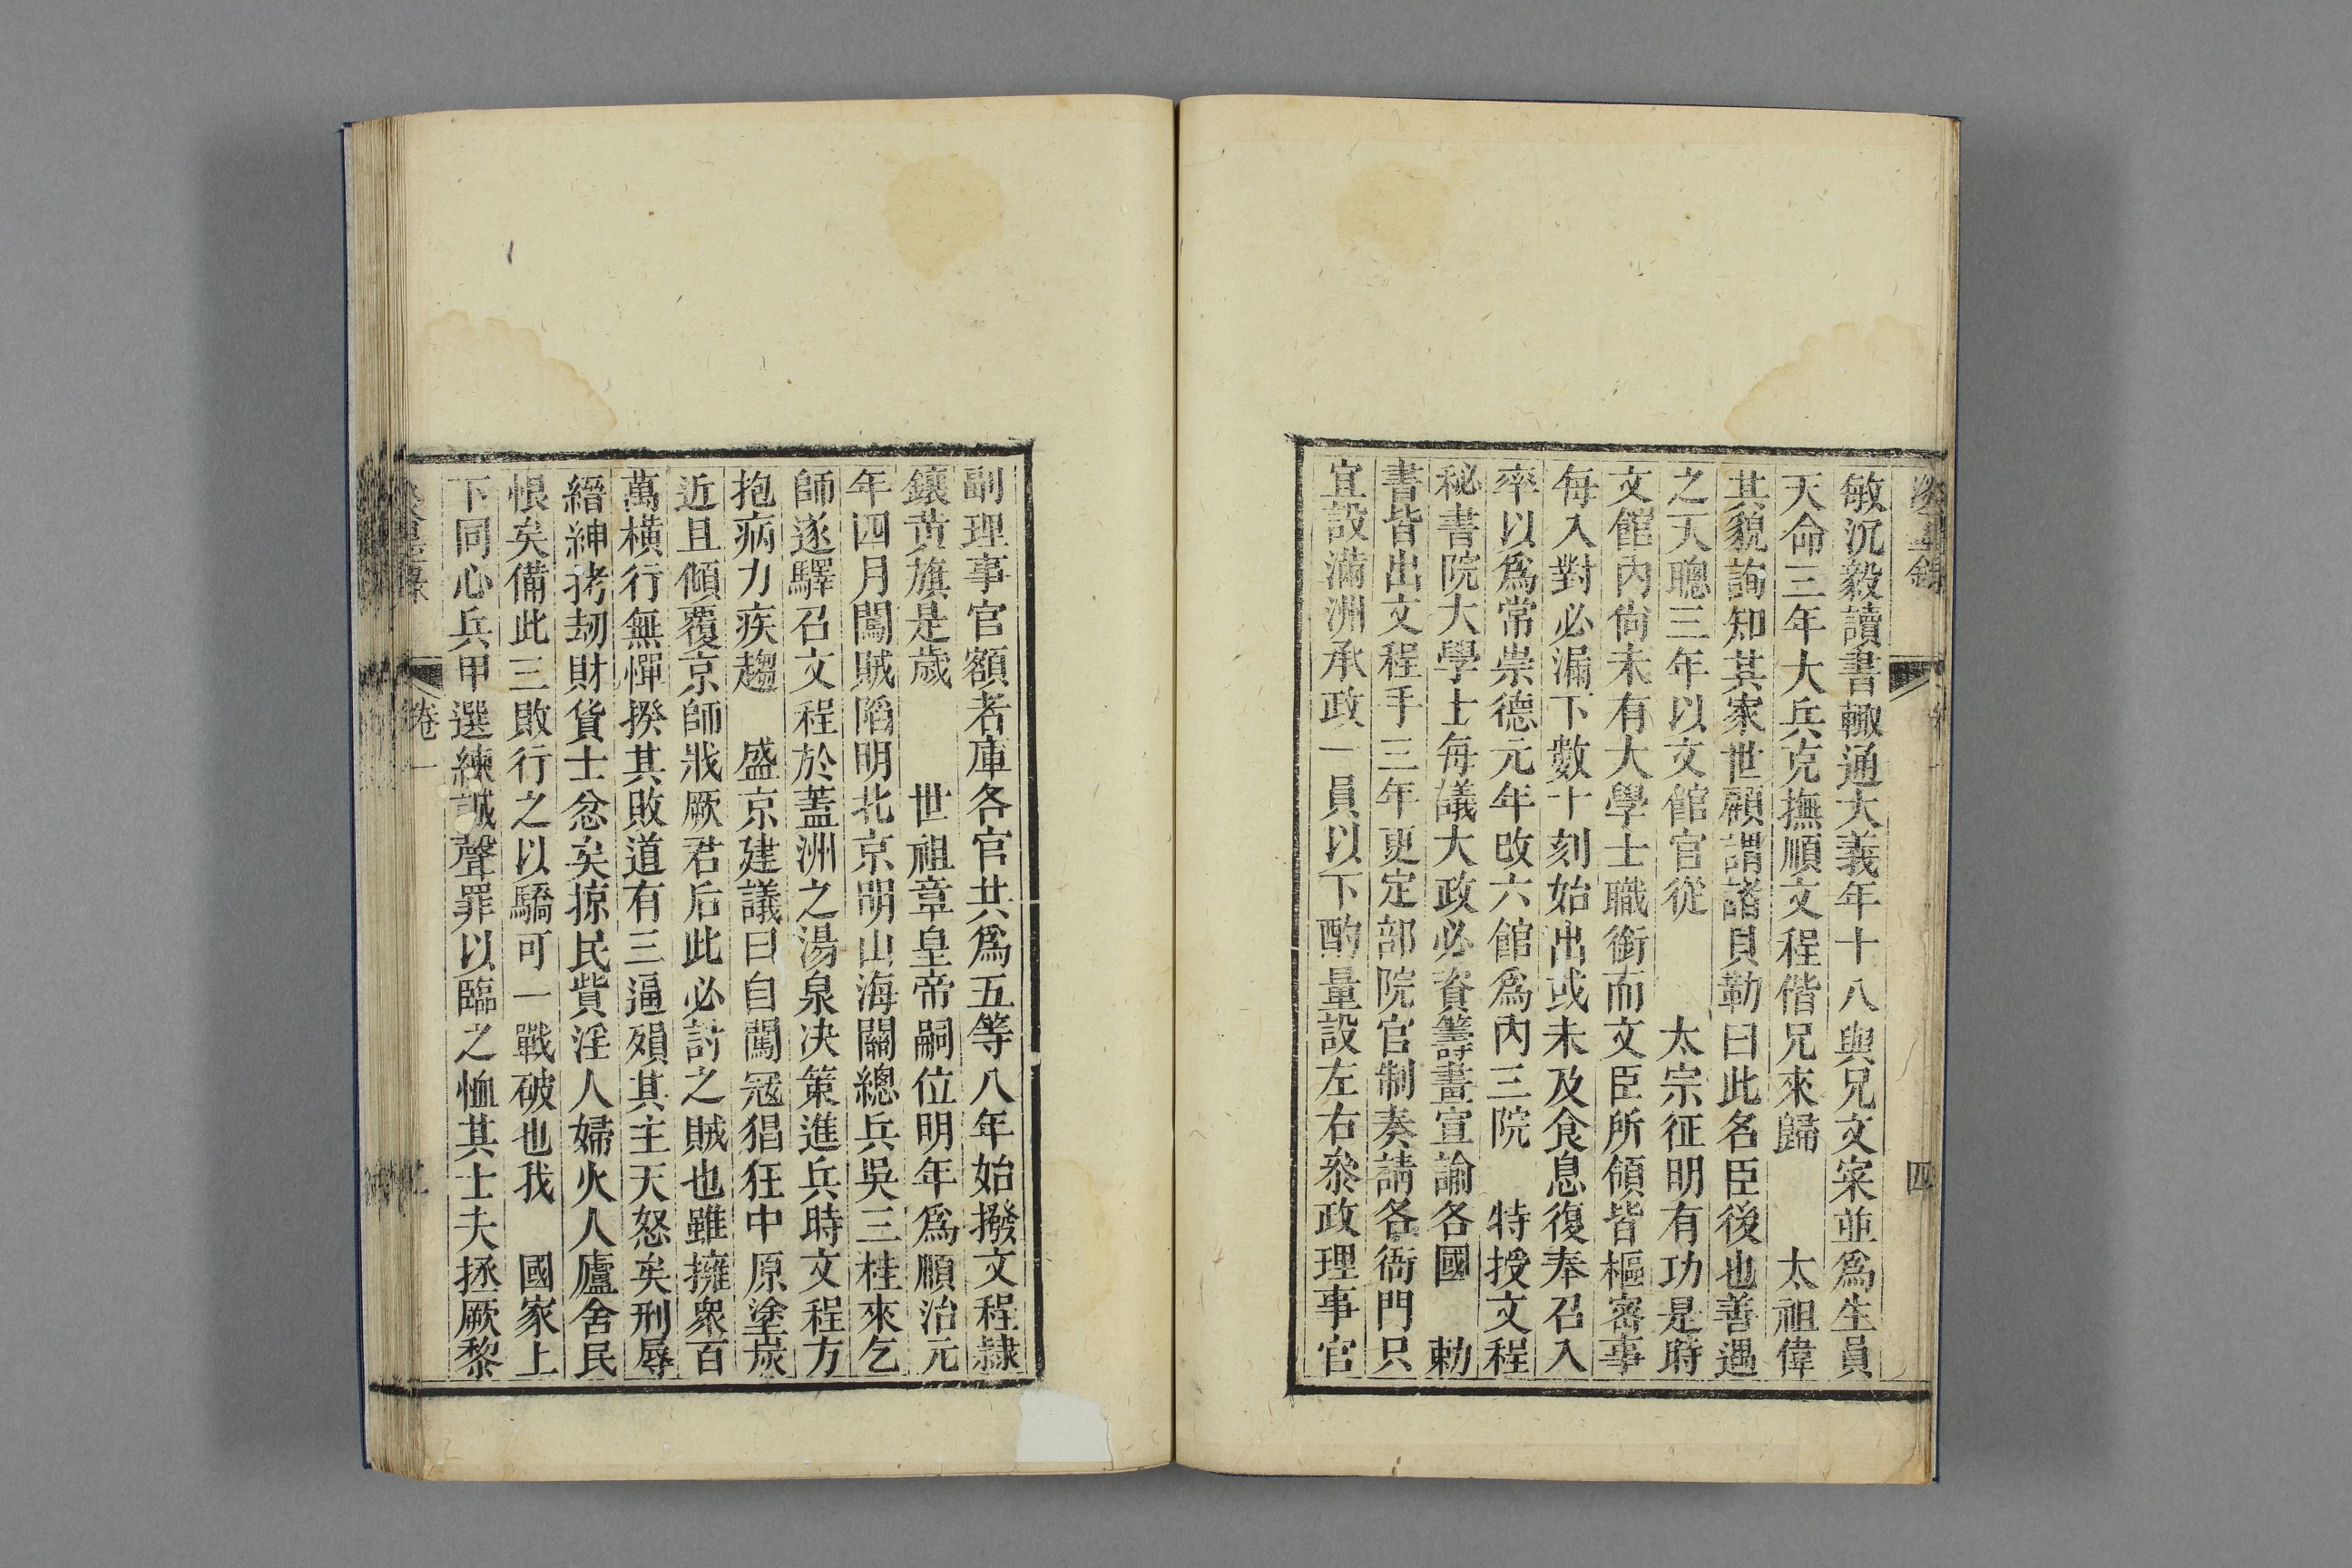 敏沉毅讀書輙通大義年十八與兄文寀並爲生員
天命三年大兵克撫順文程偕兄來歸　太祖偉
其貌詢知其家世顧謂諸貝勒曰此名臣後也善遇
之天聰三年以文館官從　太宗征明有功是時
文館內尙未有大學士職銜而文臣所領皆樞密事
每入對必漏下數十刻始出或未及食息復奉召入
率以爲常崇德元年改六館爲內三院　特授文程
秘書院大學士每議大政必資籌畫宣諭各國　勅
書皆出文程手三年更定部院官制奏請各衙門只
宜設滿洲承政一員以下酌量設左右叅政理事官
四
副理事官額者庫各官共爲五等八年始撥文程隷
鑲黃旗是歲　世祖章皇帝嗣位明年爲順治元
年四月闖賊陷明北京明山海關總兵吳三桂來乞
師遂驛召文程於蓋洲之湯泉决策進兵時文程方
抱病力疾趨　盛京建議曰自闖寇猖狂中原塗炭
近且傾覆京師戕厥君后此必討之賊也雖擁衆百
萬橫行無憚揆其敗道有三逼殞其主天怒矣刑辱
縉紳拷刼財貨士忿矣掠民貲淫人婦火人廬舍民
恨矣備此三敗行之以驕可一戰破也我　國家上
下同心兵甲選練誠聲罪以臨之恤其士夫拯厥黎
卷一